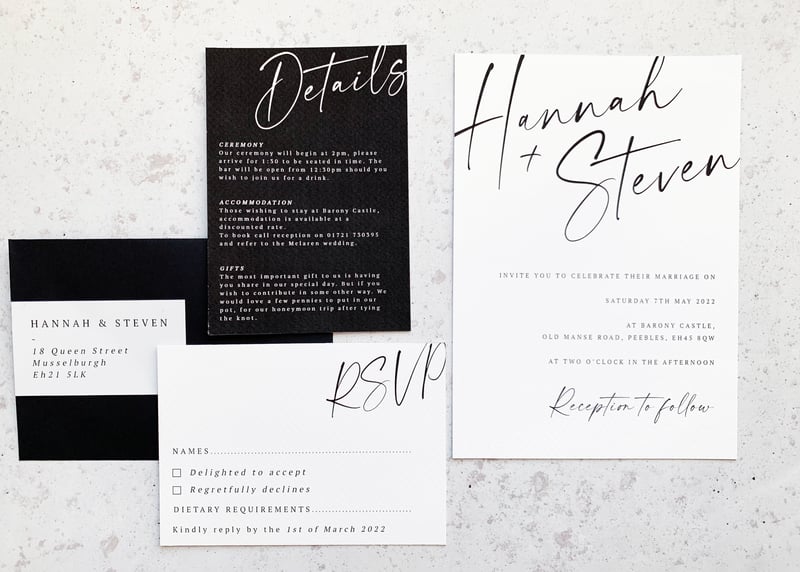 Details
CEREMONY
Our ceremony will begin at 2pm, please
arrive for 1:30 to be seated in time. The
bar will be open from 12:30pm should you
wish to join us for a drink.
ACCOMMODATION
Those wishing to stay at Barony Castle,
accommodation is available at a
discounted rate.
To book call reception on 01721 730395
and refer to the Melaren wedding.
GIFTS
The most important gift to us is having
you share in our special day. But if you
wish to contribute in some other way. We
would love a few pennies to put in our
pot, for our honeymoon trip after tying
the knot.
HANNAH & STEVEN
-
18 Queen Street
Musselburgh
Eh21 5LK
RSVP
NAMES
Delighted to accept
Regretfully declines
DIETARY REQUIREMENTS
Kindly reply by the 1st of March 2022
Hannah
+ Steven
INVITE YOU TO CELEBRATE THEIR MARRIAGE ON
SATURDAY 7TH MAY 2022
AT BARONY CASTLE,
OLD MANSE ROAD, PEEBLES, EH45 8QW
AT TWO O'CLOCK IN THE AFTERNOON
Reception to follow